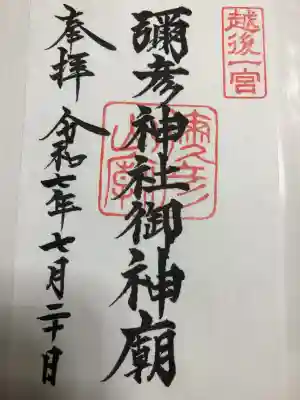 越後一宮
彌彦神社御神廟
奉拝
令和七年七月二十日